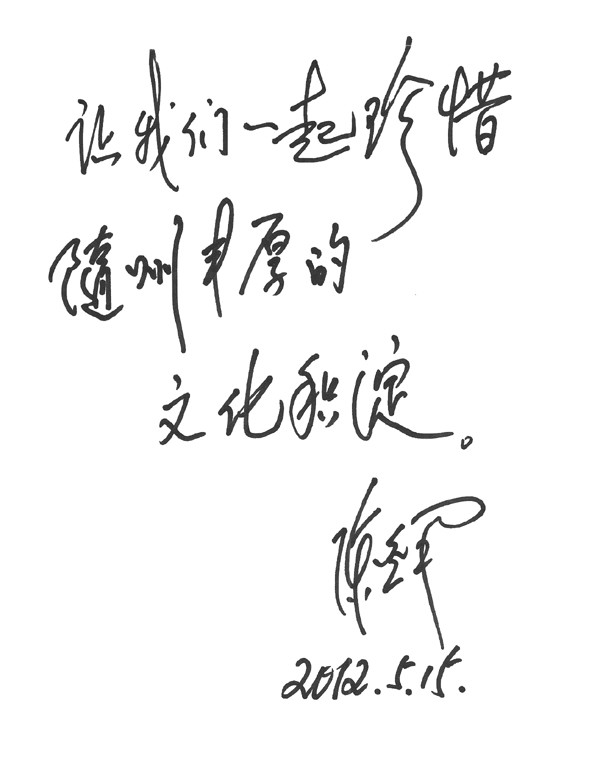 让我们一起珍惜
随州丰厚的
文化积淀。
2012.5.15.